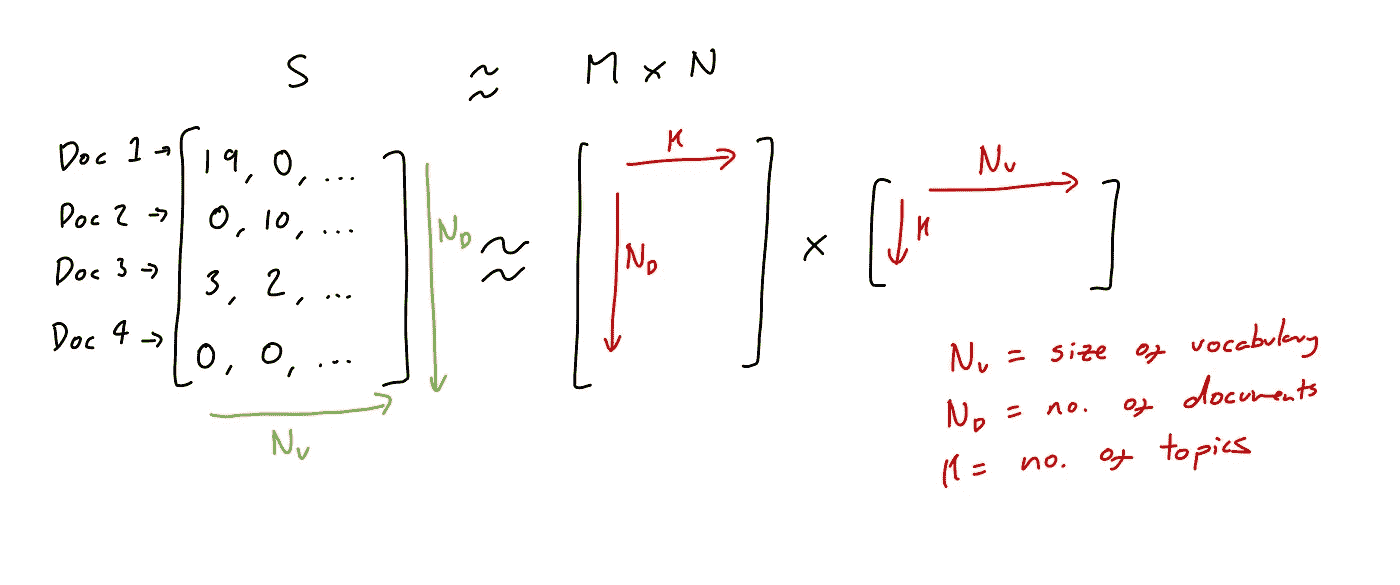 S ≈ M × N
Doc 1 → [19, 0, ...
Doc 2 → 0, 10, ...
Doc 3 → 3, 2, ...
Doc 4 → 0, 0, ...]
N_D
N_V
≈
K
N_D
×
N_V
K
N_V = size of vocabulary
N_D = no. of documents
K = no. of topics